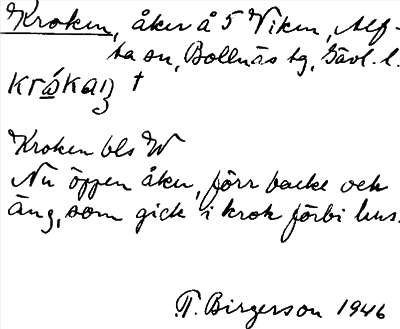 Kroken, åker å 5 Viken, Alf-
ta sn, Bollnäs tg, Gävl. l.
krɷ́kaɳ †
Kroken bls W
Nu öppen åker, förr backe och
äng, som gick i krok förbi hus.
T. Birgerson 1946